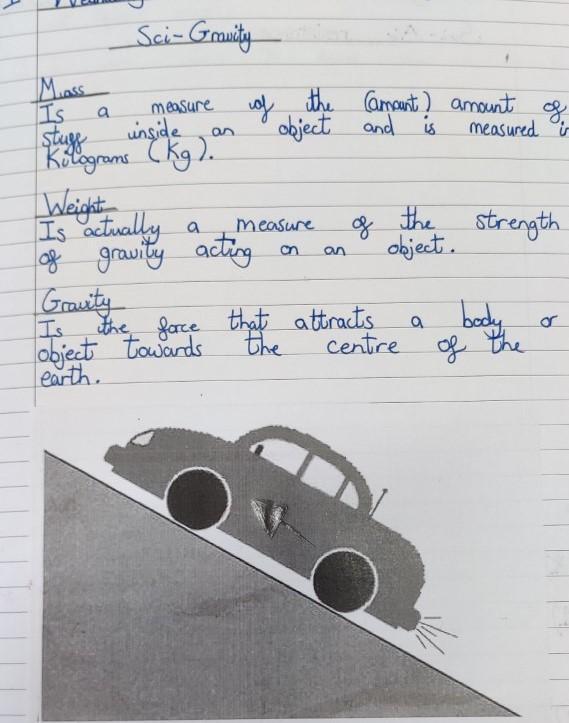 Sci-Gravity
Mass
Is a measure of the (amount) amount of
stuff inside an object and is measured in
Kilograms (Kg).
Weight
Is actually a measure of the strength
of gravity acting on an object.
Gravity
Is the force that attracts a body or
object towards the centre of the
earth.